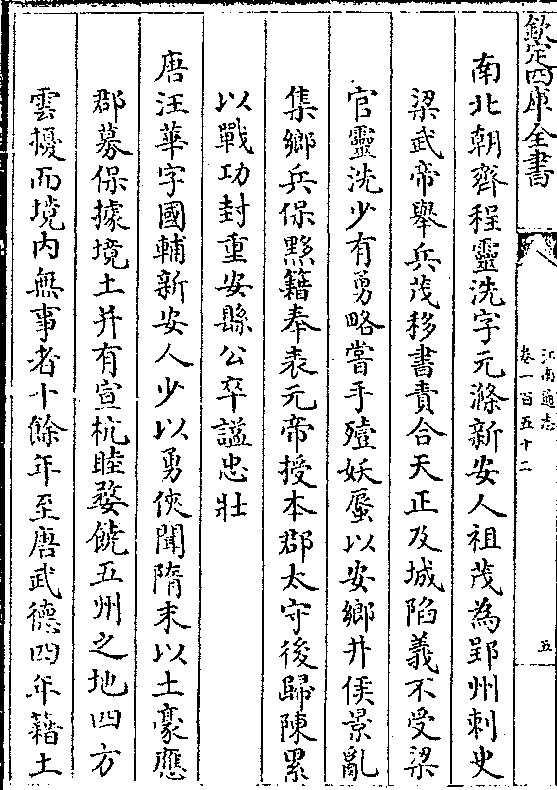 欽定四庫全書
江南通志
卷一百五十二
五
南北朝齊程靈洗字元滌新安人祖茂為郢州刺史
梁武帝舉兵茂移書責合天正及城陷義不受梁
官靈洗少有勇略嘗手殪妖蜃以安鄉井侯景亂
集鄉兵保黟籍奉表元帝授本郡太守後歸陳累
以戰功封重安縣公卒諡忠壯
唐汪華字國輔新安人少以勇俠聞隋末以土豪應
郡募保據境土并有宣杭睦婺饒五州之地四方
雲擾而境内無事者十餘年至唐武德四年籍土